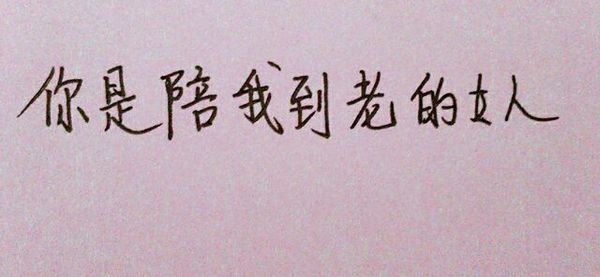 你是陪我到老的女人